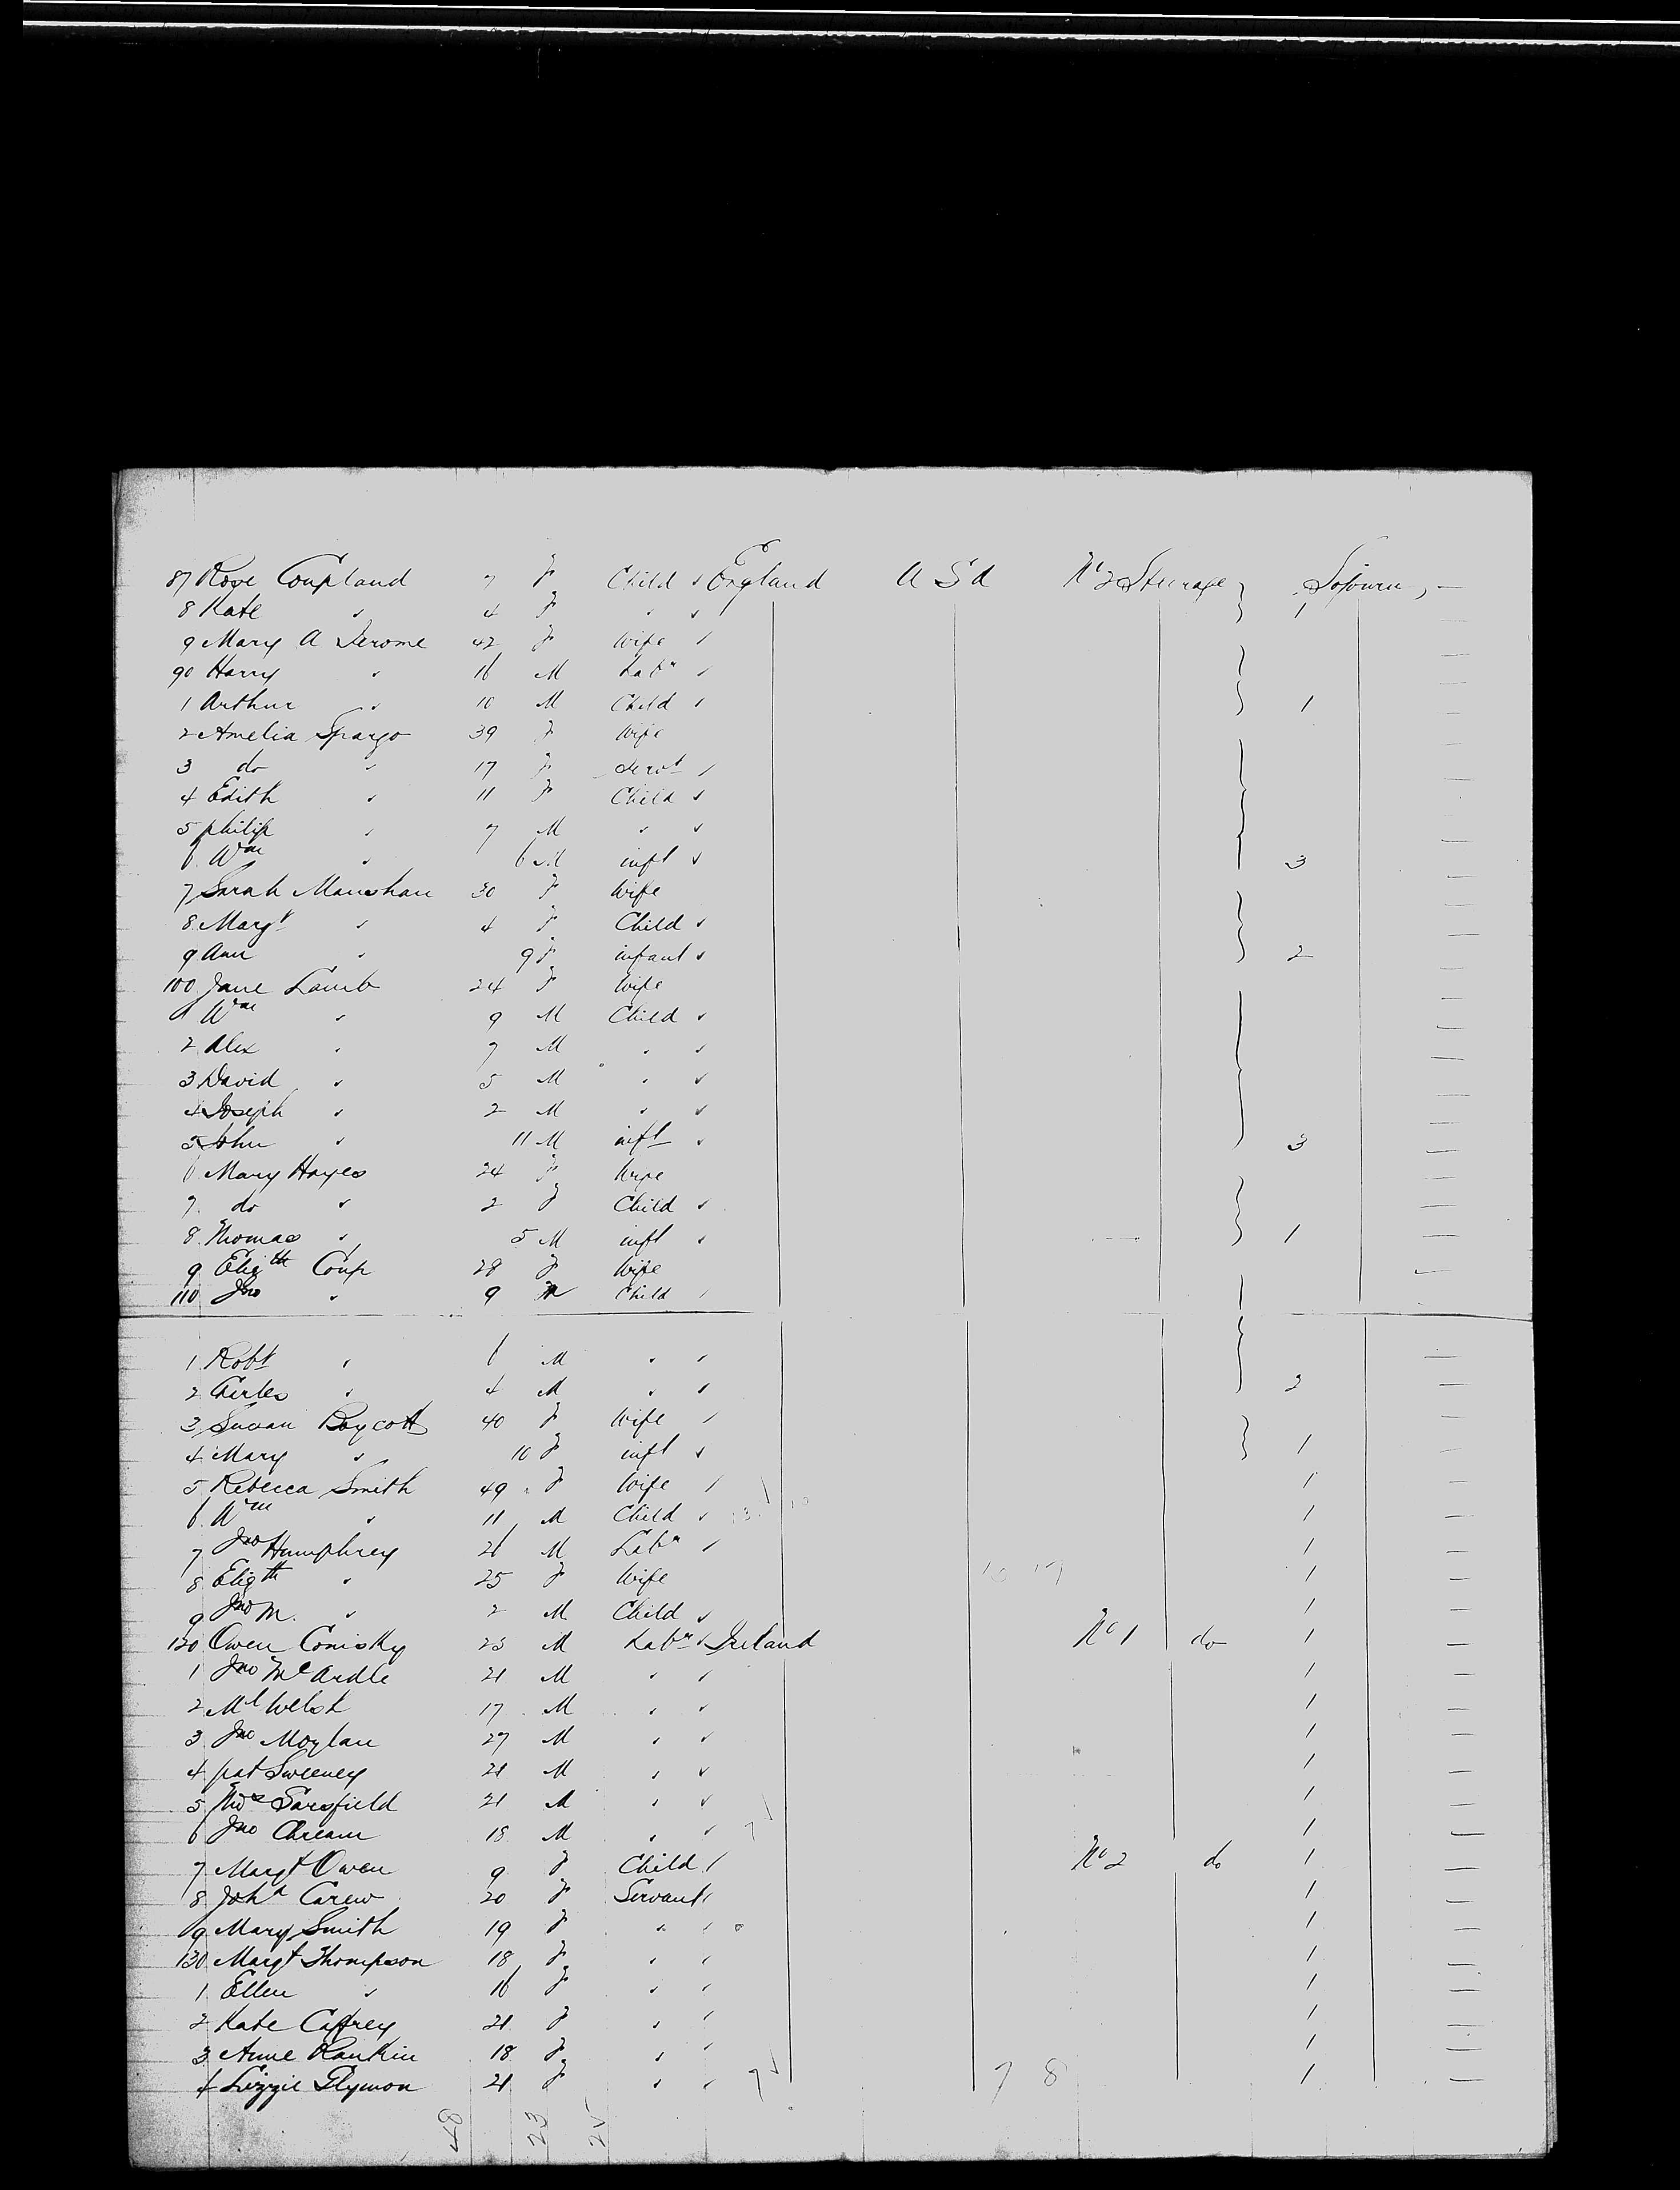 87 Rose Coupland 7 F Child " England U S A No 2 Steerage } Sojourn, —
8 Kate " 4 F " " } 1 —
9 Mary A Jerome 42 F Wife " —
90 Harry " 16 M Labr " —
1 Arthur " 10 M Child " 1 —
2 Amelia Spargo 39 F Wife —
3 do " 17 F Servt " —
4 Edith " 11 F Child " —
5 philip " 7 M " " —
6 Wm " 6 M inft " 3 —
7 Sarah Manshan 30 F Wife —
8 Margt " 4 F Child " —
9 Ann " 9 F infant " 2 —
100 Jane Lamb 24 F Wife —
1 Wm " 9 M Child " —
2 Alex " 7 M " " —
3 David " 5 M " " —
4 Joseph " 2 M " " —
5 John " 11 M inft " 3 —
6 Mary Hayes 24 F Wife —
7 do " 2 F Child " —
8 Thomas " 5 M inft " 1 —
9 Elizth Coup 28 F Wife —
110 Jno " 9 M Child "
1 Robt " 6 M " " —
2 Charles " 4 M " " 2 —
3 Susan Boycott 40 F Wife " —
4 Mary " 10 F inft " 1 —
5 Rebecca Smith 49 F Wife " 1 —
6 Wm " 11 M Child " 1 —
7 Jno Humphrey 26 M Labr " 1 —
8 Elizth " 25 F Wife 1 —
9 Jno M. " 2 M Child " 1 —
120 Owen Comisky 25 M Labr " Ireland No 1 do 1 —
1 Jno McArdle 21 M " " 1 —
2 Ml Welsh 17 M " " 1 —
3 Jno Moylan 27 M " " 1 —
4 pat Sweeney 21 M " " 1 —
5 Thos Sarsfield 21 M " " 1 —
6 Jno Chream 18 M " " 7 1 —
7 Margt Owen 9 F Child " No 2 do 1 —
8 Joha Carew 20 F Servant " 1 —
9 Mary Smith 19 F " " 1 —
130 Margt Thompson 18 F " " 1 —
1 Ellen " 16 F " " 1 —
2 Kate Caffrey 21 F " " 1 —
3 Anne Rankin 18 F " " 1 —
4 Lizzie Glymon 21 F " " 7 7 8 1 —
48 23 25